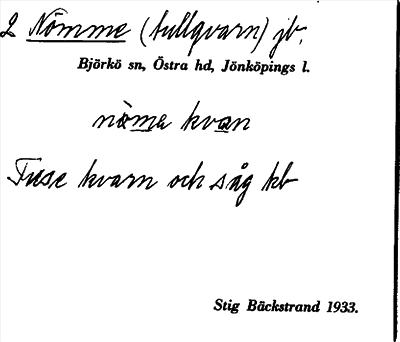 2 Nömme (tullqvarn) jb.
Björkö sn, Östra hd, Jönköpings l.
nöma kvan
Fuse kvarn och såg kb
Stig Bäckstrand 1933.